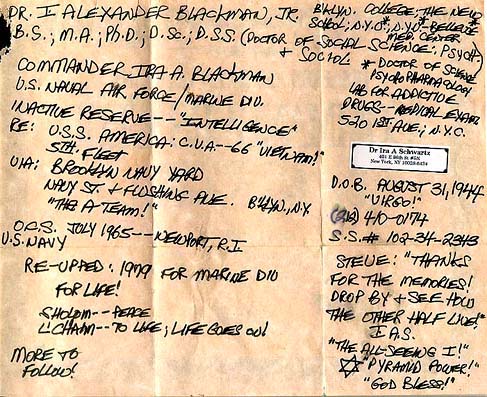 DR. I ALEXANDER BLACKMAN, JR.
B.S.; M.A.; Ph.D.; D.Sc.; D.S.S. (DOCTOR OF SOCIAL SCIENCE; PSYCH. + SOCIOL.
BKLYN. COLLEGE; THE NEW SCHOOL; N.Y.O.; N.Y.U. BELLEVUE MED. CENTER
COMMANDER IRA A. BLACKMAN
U.S. NAVAL AIR FORCE/MARINE DIV.
INACTIVE RESERVE---"INTELLIGENCE"
RE: U.S.S. AMERICA: C.V.A--66 "VIETNAM!"
5TH. FLEET
VIA: BROOKLYN NAVY YARD
NAVY ST + FLUSHING AVE. BKLYN., N.Y.
"THE A-TEAM!"
O.C.S. JULY 1965---NEWPORT, R.I
U.S. NAVY
RE-UPPED: 1979 FOR MARINE DIV
FOR LIFE!
SHOLOM---PEACE
L'CHAIM---TO LIFE; LIFE GOES ON!
MORE TO
FOLLOW!
* DOCTOR OF SCIENCE
PSYCHOPHARMACOLOGY
LAB FOR ADDICTIVE
DRUGS---MEDICAL EXAM
520 1ST AVE; N.Y.C.
Dr Ira A Schwartz
New York, NY
D.O.B. AUGUST 31, 1944
"VIRGO!"
(212) 410-0174
S.S.# 102-34-2343
STEVE: "THANKS
FOR THE MEMORIES!
DROP BY + SEE HOW
THE OTHER HALF LIVE!"
I.A.S.
"THE ALL-SEEING I!"
"PYRAMID POWER!"
"GOD BLESS!"